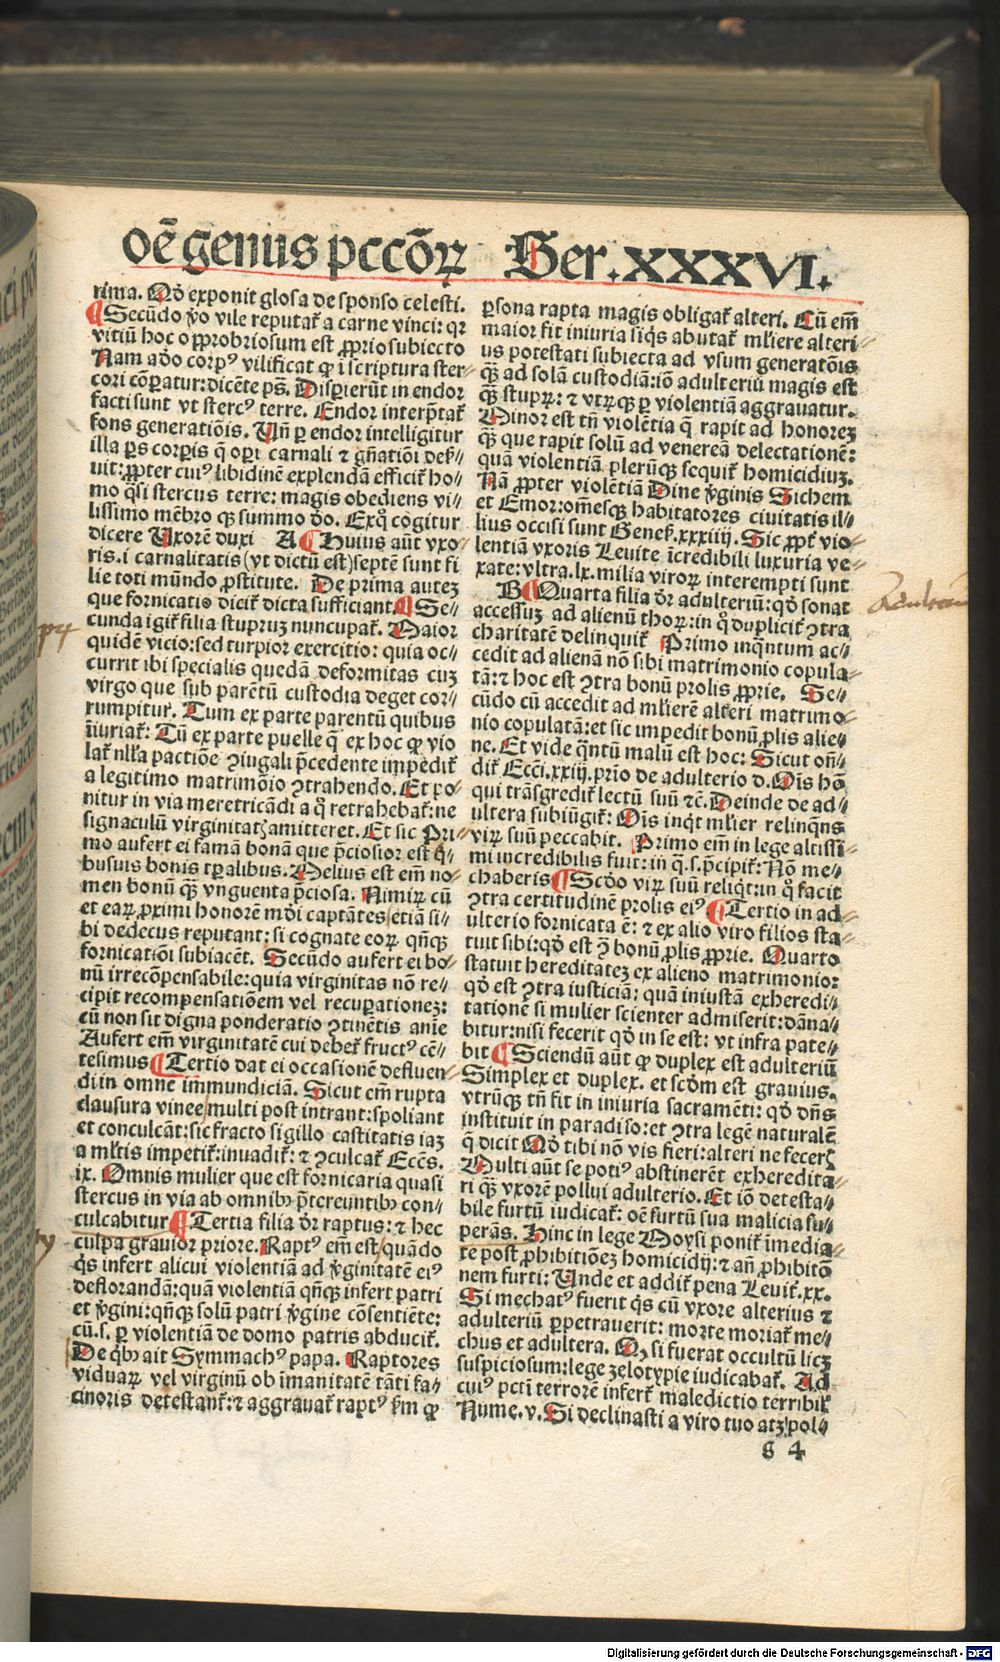 oē genus pccōꝝ Ser. XXXVI.
rima. Qd̄ exponit glosa de sponso celesti.
¶ Secūdo v̄o vile reputat̄ a carne vinci: qꝛ
vitiū hoc opprobriosum est ꝓprio subiecto
Nam adeo corpꝰ vilificat ꝙ ī scriptura ster-
cori cōparatur: dicēte ps̄. Disperierūt in endor
facti sunt vt stercꝰ terre. Endor interp̄tat̄
fons generatiōis. Un̄ per endor intelligitur
illa ps corpis q̄ operi carnali ⁊ gn̄ationi des-
uit: ꝓpter cuiꝰ libidinē explendā efficit̄ ho-
mo q̄si stercus terre: magis obediens vi-
lissimo mēbro ꝙ̄ summo deo. Ex quo cogitur
dicere Uxorē duxi A ¶ Huius aūt vxo-
ris .i. carnalitatis (vt dictū est) septē sunt fi
lie toti mūndo ꝓstitute. De prima autez
que fornicatio dicit̄ dicta sufficiant ¶ Se-
cunda igit̄ filia stupruz nuncupat̄. Maior
quidē vicio: sed turpior exercitio: quia oc-
currit ibi specialis quedā deformitas cuz
virgo que sub parētū custodia deget cor-
rumpitur. Tum ex parte parentū quibus
īiuriat̄: Tū ex parte puelle q̄ ex hoc ꝙ vio
lat̄ nlla pactiōe ꝯiugali p̄cedente impedit̄
a legitimo matrimōio ꝯtrahendo. Et po-
nitur in via meretricādi a q̄ retrahebat̄: ne
signaculū virginitatꝭ amitteret. Et sic Pri-
mo aufert ei famā bonā que p̄ciosior est q̄-
busuis bonis tꝑalibus. Melius est em̄ no-
men bonū ꝙ̄ vnguenta p̄ciosa. Nimirꝝ cū
et eaꝝ ꝓximi honorē mōi captātes etiā si-
bi dedecus reputant: si cognate eoꝝ qn̄qꝫ
fornicatiōi subiacēt. Secūdo aufert ei bo-
nū irrecōpensabile: quia virginitas nō re-
cipit recompensatiōem vel recuꝑationez:
cū non sit digna ponderatio ꝯtinētis anīe
Aufert em̄ virginitatē cui debet̄ fructꝰ cē-
tesimus ¶ Tertio dat ei occasionē defluen-
di in omne immundiciā. Sicut em̄ rupta
clausura vinee multi post intrant: spoliant
et conculcāt: sic fracto sigillo castitatis iaꝫ
a mltis impetit̄: inuadit̄: ⁊ ꝯculcat̄ Eccēs.
ix. Omnis mulier que est fornicaria quasi
stercus in via ab omnibꝰ p̄tereuntibꝰ con-
culcabitur ¶ Tertia filia dr̄ raptus: ⁊ hec
culpa grauior priore. Raptꝰ em̄ est quādo
q̄s infert alicui violentiā ad v̄ginitatē eiꝰ
deflorandā: quā violentiā qn̄qꝫ infert patri
et v̄gini: qn̄qꝫ solū patri v̄gine cōsentiēte:
cū .s. ꝑ violentiā de domo patris abducit̄.
De q̄bꝰ ait Symmachꝰ papa. Raptores
viduaꝝ vel virginū ob īmanitatē tāti fa-
cinoris detestant̄: ⁊ aggrauat̄ raptꝰ ꝙ
ꝑsona rapta magis obligat̄ alteri. Cū em̄
maior fit iniuria siq̄s abutat̄ mliere alteri-
us potestati subiecta ad vsum generatōis
ꝙ̄ ad solā custodiā: iō adulteriū magis est
ꝙ̄ stupꝝ: ⁊ vtrūqꝫ ꝑ violentiā aggrauatur.
Minor est tn̄ violētia q̄ rapit ad honorez
ꝙ̄ que rapit solū ad venereā delectationē:
quā violentiā plerūqꝫ sequit̄ homicidiuꝫ.
Nā ꝓpter violētiā Dine v̄ginis Sichem
et Emor: omēsqꝫ habitatores ciuitatis il-
lius occisi sunt Genes̄. xxxiiij. Sic ꝓpt̄ vio-
lentiā vxoris Leuite īcredibili luxuria ve-
xate: vltra .lx. milia viroꝝ interempti sunt
B ¶ Quarta filia dr̄ adulteriū: qd̄ sonat
accessuꝫ ad alienū thoꝝ: in q̄ duplicit̄ ꝯtra
charitatē delinquit̄ Primo inq̄ntum ac-
cedit ad alienā nō sibi matrimonio copula-
tā: ⁊ hoc est ꝯtra bonū prolis ꝓprie. Se-
cūdo cū accedit ad mlierē alteri matrimo-
nio copulatā: et sic impedit bonū ꝓlis alie-
ne. Et vide q̄ntū malū est hoc: Sicut on̄-
dit̄ Ecci. xxiij. prio de adulterio d. Ois hō
qui trāsgredit̄ lectū suū ⁊c̄. Deinde de ad-
ultera subiūgit̄: Ois inq̄t mlier relinq̄ns
viꝝ suū peccabit. Primo em̄ in lege altissi-
mi incredibilis fuit: in q̄ .s. p̄cipit̄: Nō me-
chaberis ¶ Scdo viꝝ suū reliq̄t: in q̄ facit
ꝯtra certitudinē prolis eiꝰ ¶ Tertio in ad-
ulterio fornicata ē: ⁊ ex alio viro filios sta-
tuit sibi: qd̄ est ꝯ bonū ꝓlis ꝓprie. Quarto
statuit hereditateꝫ ex alieno matrimonio:
qd̄ est ꝯtra iusticiā: quā iniustā exheredi-
tationē si mulier scienter admiserit: dāna-
bitur: nisi fecerit qd̄ in se est: vt infra pate-
bit ¶ Sciendū aūt ꝙ duplex est adulteriū
Simplex et duplex. et scdm est grauius.
vtrūqꝫ tn̄ fit in iniuria sacramēti: qd̄ dn̄s
instituit in paradiso: et ꝯtra legē naturalē
q̄ dicit Qd̄ tibi nō vis fieri: alteri ne feceris
Multi aūt se potiꝰ abstinerēt exheredita-
ri ꝙ̄ vxorē pollui adulterio. Et iō detesta-
bile furtū iudicat̄: oē furtū sua malicia su-
perās. Hinc in lege Moysi ponit̄ īmedia-
te post ꝓhibitiōeꝫ homicidij: ⁊ an̄ ꝓhibitō
nem furti: Unde et addit̄ pena Leuit̄. xx.
Si mechatꝰ fuerit q̄s cū vxore alterius ⁊
adulteriū ꝑpetrauerit: morte moriat̄ me-
chus et adultera. Qꝫ si fuerat occultū licꝫ
suspiciosum: lege zelotypie iudicabat̄. Ad
cuiꝰ pcti terrorē infert̄ maledictio terribil̄
Nume. v. Si declinasti a viro tuo atqꝫ pol-
s 4
Digitalisierung gefördert durch die Deutsche Forschungsgemeinschaft - DFG